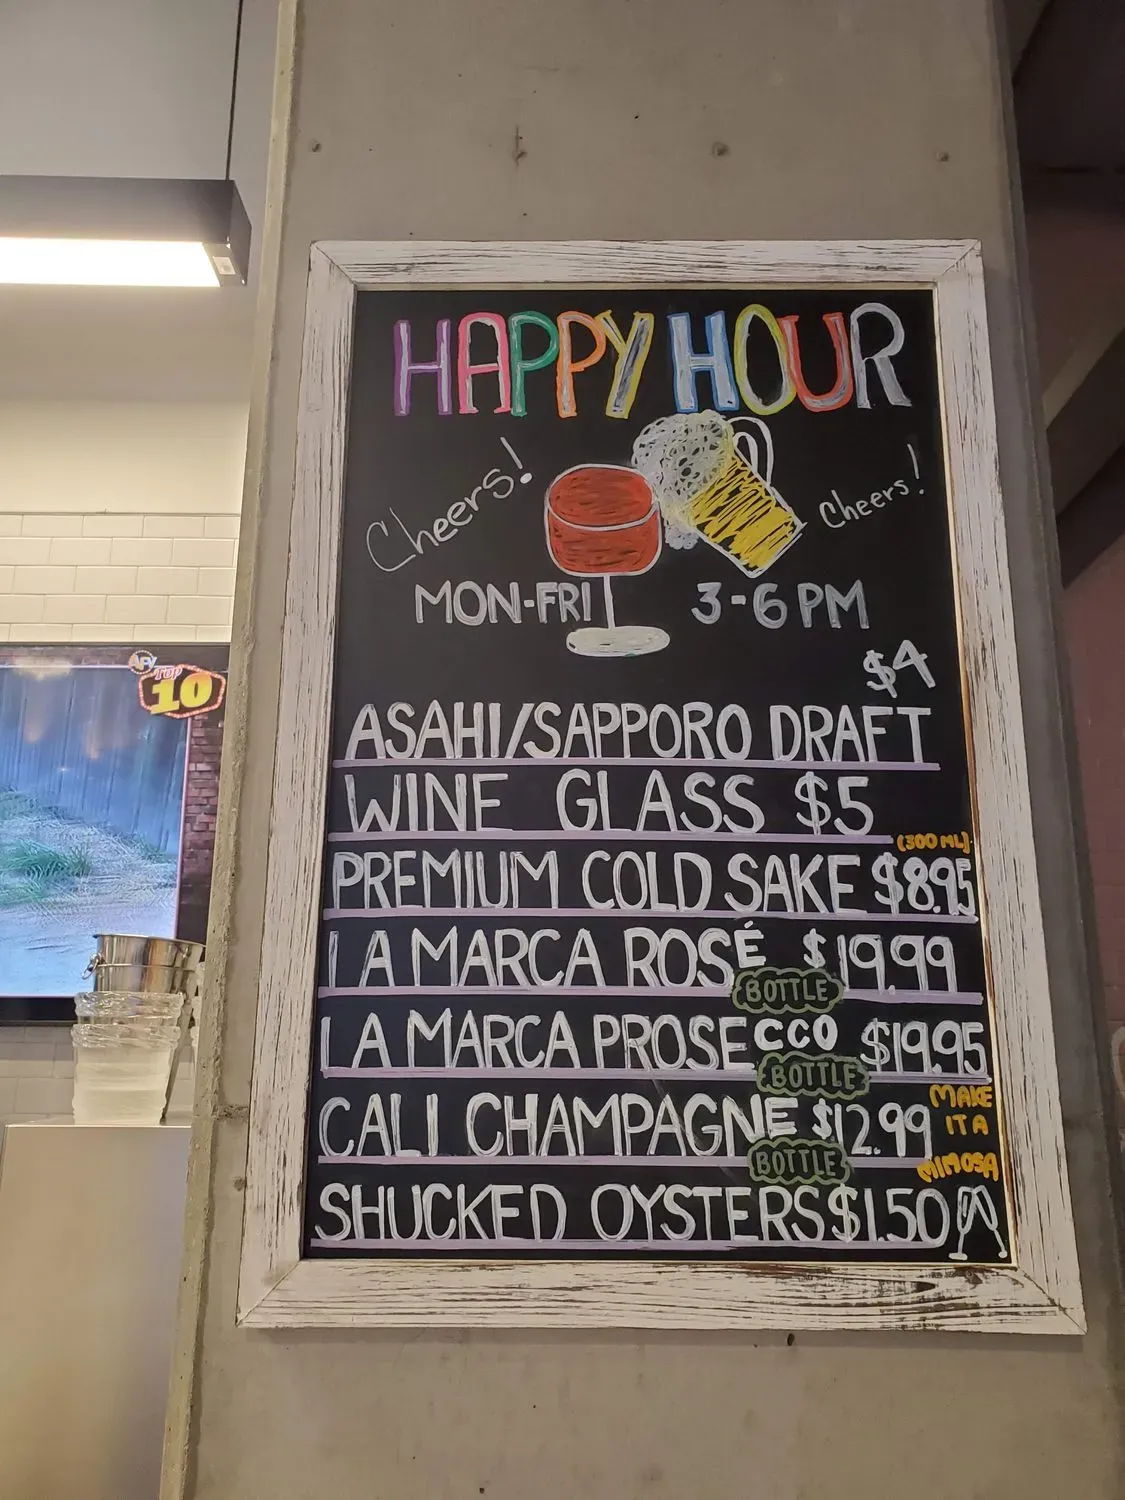 HAPPY HOUR
Cheers!
Cheers!
MON-FRI 3-6 PM
$4
ASAHI/SAPPORO DRAFT
WINE GLASS $5
(300 ML)
PREMIUM COLD SAKE $8.95
LA MARCA ROSÉ $19.99
BOTTLE
LA MARCA PROSECCO $19.95
BOTTLE
CALI CHAMPAGNE $12.99
BOTTLE
MAKE
IT A
MIMOSA
SHUCKED OYSTERS $1.50
AFV
TOP
10